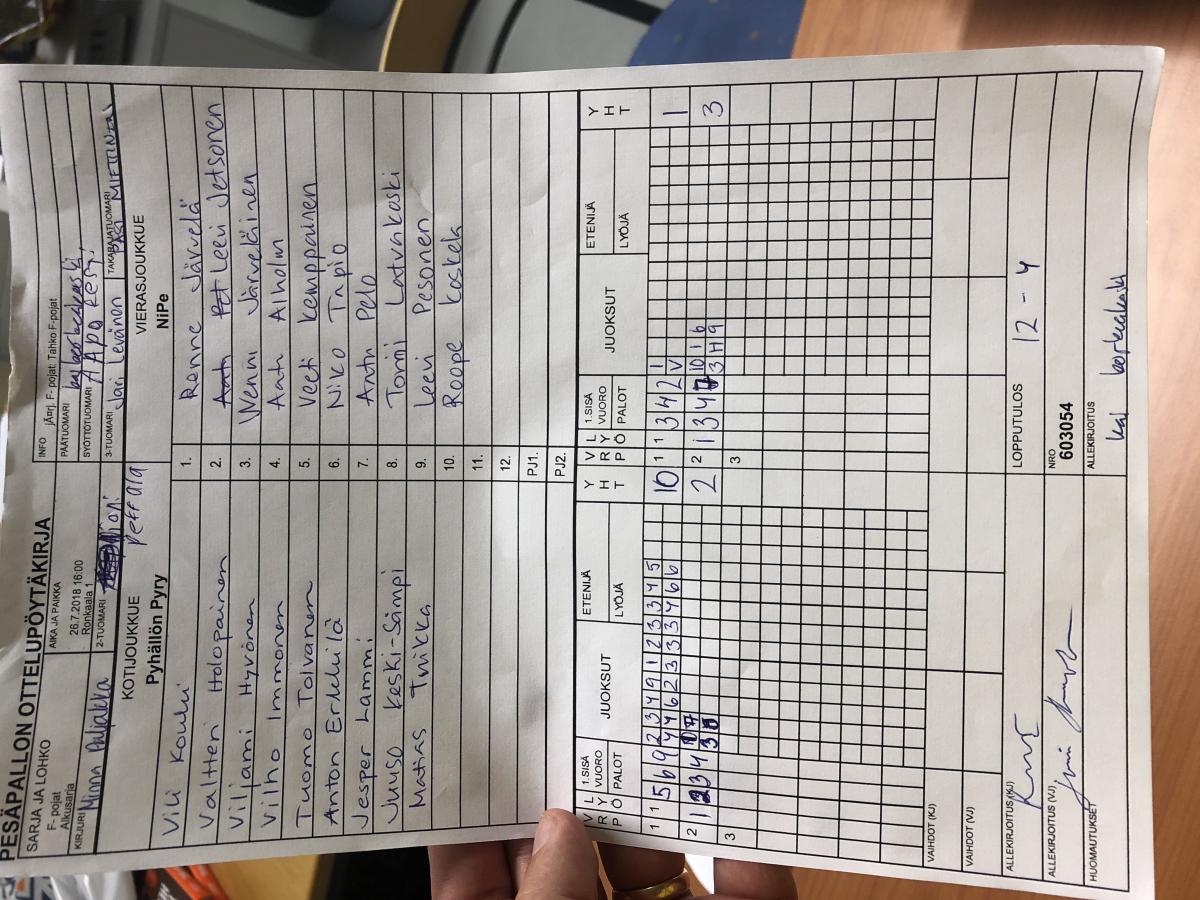 PESÄPALLON OTTELUPÖYTÄKIRJA
SARJA JA LOHKO
F- pojat
Alkusarja
AIKA JA PAIKKA
26.7.2018 16:00
Ronkaala 1
INFO Tahko F-pojat
PÄÄTUOMARI
SYÖTTÖTUOMARI
KIRJURI Minna
2-TUOMARI
3-TUOMARI Jari Levänen
TAKARAJATUOMARI
KOTIJOUKKUE
Pyhällön Pyry
VIERASJOUKKUE
NiPe
Vili Kouki 1. Renne Järvelä
Valtteri Holopainen 2. Leevi Jetsonen
Viljami Hyvönen 3. Järveläinen
Vilho Immonen 4. Alholm
Tuomo Tolvanen 5. Veeti Kemppainen
Anton Erkkilä 6. Niko Tapio
Jesper Lammi 7. Pelo
Juuso Keski-Sämpi 8. Tommi Latvakoski
Matias Tuikka 9. Leevi Pesonen
10. Roope Koskela
11.
12.
PJ1.
PJ2.
V R P L Y Ö 1.SISÄ VUORO PALOT JUOKSUT ETENIJÄ LYÖJÄ Y H T V R P L Y Ö 1.SISÄ VUORO PALOT JUOKSUT ETENIJÄ LYÖJÄ Y H T
1 1 5 6 9 2 3 4 9 1 2 3 3 4 5 10 1 1 3 4 2 1 1
4 4 6 2 3 3 4 6 6 V
2 2 2 1 3 4 10 1 6 3
3 H 9
3 3
VAIHDOT (KJ)
VAIHDOT (VJ)
ALLEKIRJOITUS (KJ)
LOPPUTULOS 12 - 4
ALLEKIRJOITUS (VJ)
NRO
603054
HUOMAUTUKSET
ALLEKIRJOITUS